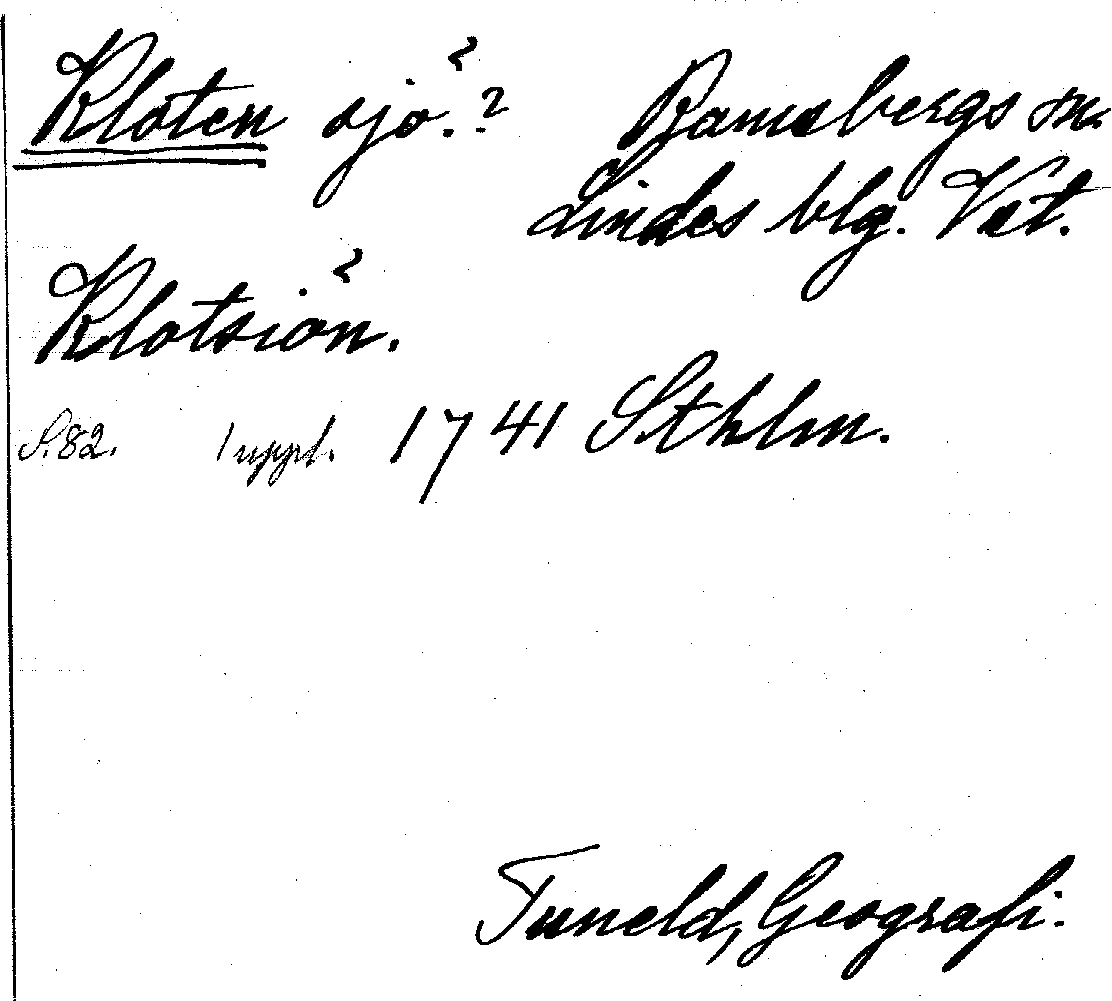 Kloten sjö.? Ramsbergs sn.
Lindes blg. Vst.
Klotsiön.
S. 82. 1 uppl. 1741 Sthlm.
Tuneld, Geografi.